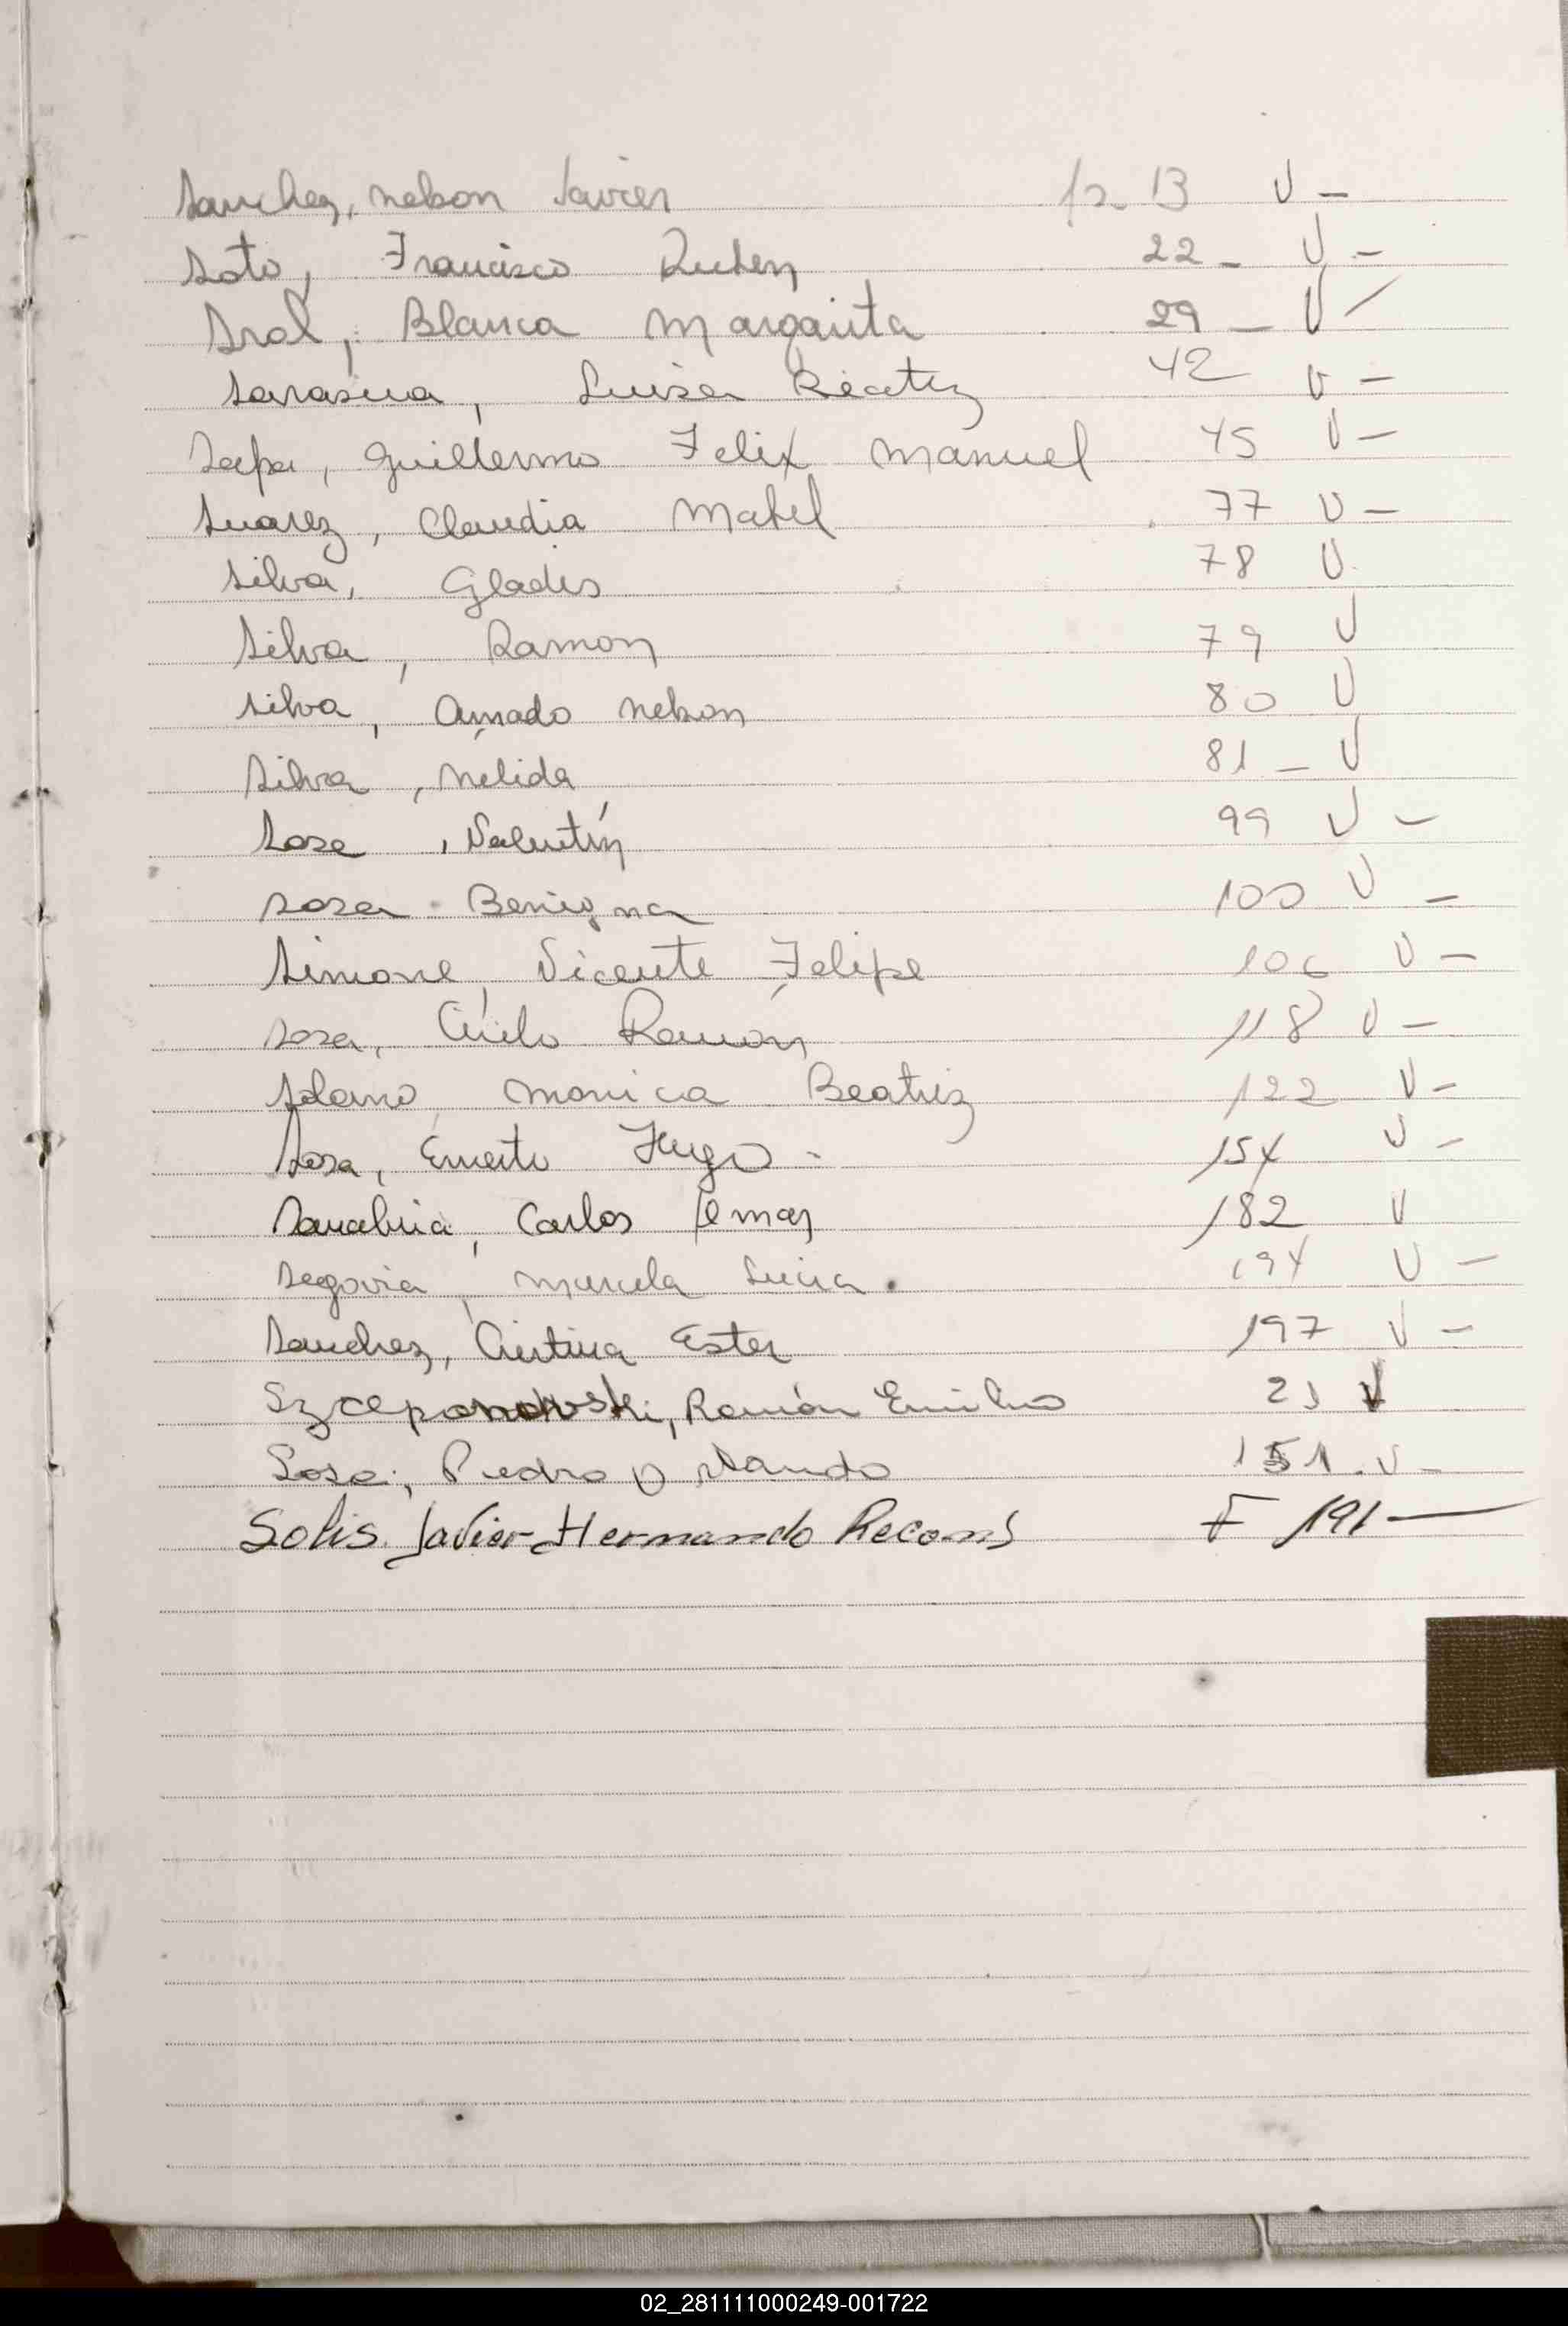 Sanchez, Nelson Javier fs. 13 V -
Soto, Francisco Ruben 22 - V -
Sral, Blanca Margarita 29 - V -
Sarasua, Luisa Beatriz 42 V -
Sapa, Guillermo Felix Manuel 45 V -
Suarez, Claudia Mabel 77 V -
Silva, Gladis 78 V
Silva, Ramon 79 V
Silva, Amado Nelson 80 V
Silva, Nélida 81 - V
Sosa, Valentín 99 V -
Sosa Benigna 100 V -
Simone, Vicente Felipe 106 V -
Sosa, Cirilo Ramón 118 V -
Solano, Monica Beatriz 122 V -
Sosa, Ernesto Hugo - 154 V -
Sanabria, Carlos Omar 182 V
Segovia, Marcela Lucia. 194 V -
Sanchez, Cristina Ester 197 V -
Szceponowski, Ramón Emilio 21 V
Sosa, Pedro Orlando 151. V -
Solis. Javier Hernando Recons F 191 -
02_281111000249-001722